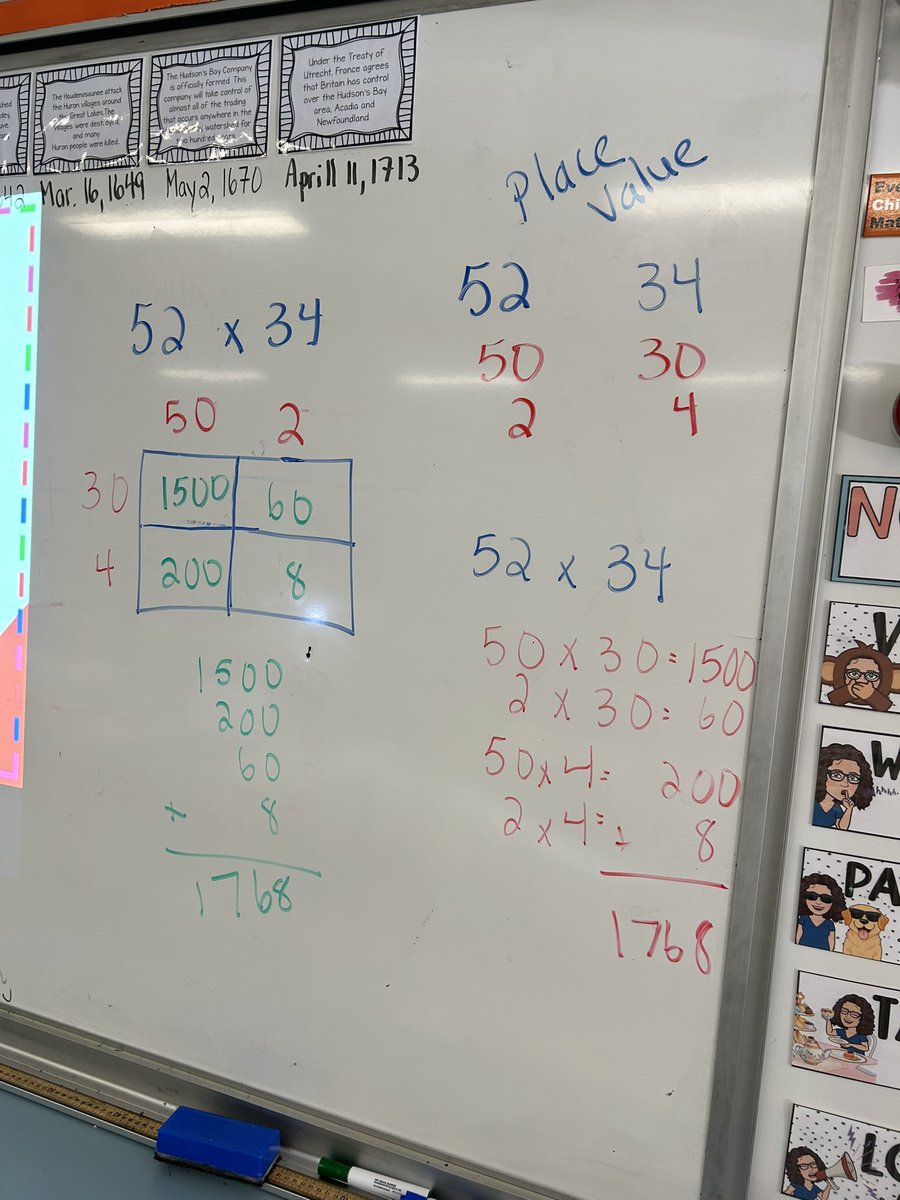 The Haudenosaunee attack
the Huron villages around
the Great Lakes. The
villages were destroyed,
and many
Huron people were killed.
Mar. 16, 1649
The Hudson's Bay Company
is officially formed. This
company will take control of
almost all of the trading
that occurs anywhere in the
watershed for
two hundred years.
May 2, 1670
Under the Treaty of
Utrecht, France agrees
that Britain has control
over the Hudson's Bay
area, Acadia and
Newfoundland.
Aprill 11, 1713
52 x 34
50 2
30 1500 60
4 200 8
1500
200
60
+ 8
1768
Place
Value
52 34
50 30
2 4
52 x 34
50 x 30 = 1500
2 x 30 = 60
50 x 4 = 200
2 x 4 = + 8
1768
Eve
Chi
Mat
N
V
W
PA
T
LO